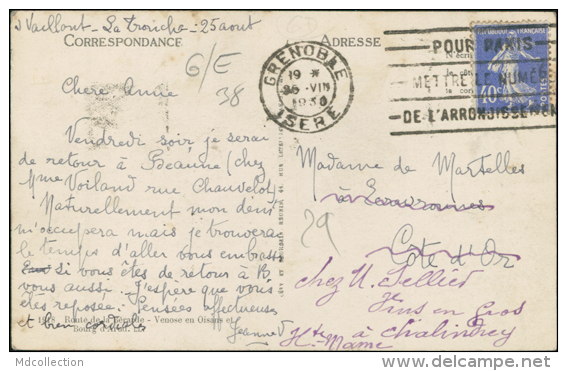 J Vaillant - La Tronche - 25 aout
CORRESPONDANCE
ADRESSE
G/E
38
GRENOBLE
19 *
25 - VIII
1930
ISERE
POUR PARIS
METTRE LE NUMÉR
DE L'ARRONDISSEMEN
40c
Chère Amie
Vendredi soir, je serai
de retour à Beaune (chez
Mme Voiland rue Chauvelot)
Naturellement mon déni
m'occupera mais je trouverai
le temps d'aller vous embrass
si vous êtes de retour à B
vous aussi. J'espère que vous
êtes reposée. Pensées affectueuses
et bien cordiales
Jeanne
Route de - Venose en Oisans et
Bourg d'
Madame de Martelles
à
29
Côte d'Or
chez M. Sellier
Vins en Gros
à Chalindrey
Hte Marne
Mdcollection
www.delcampe.net